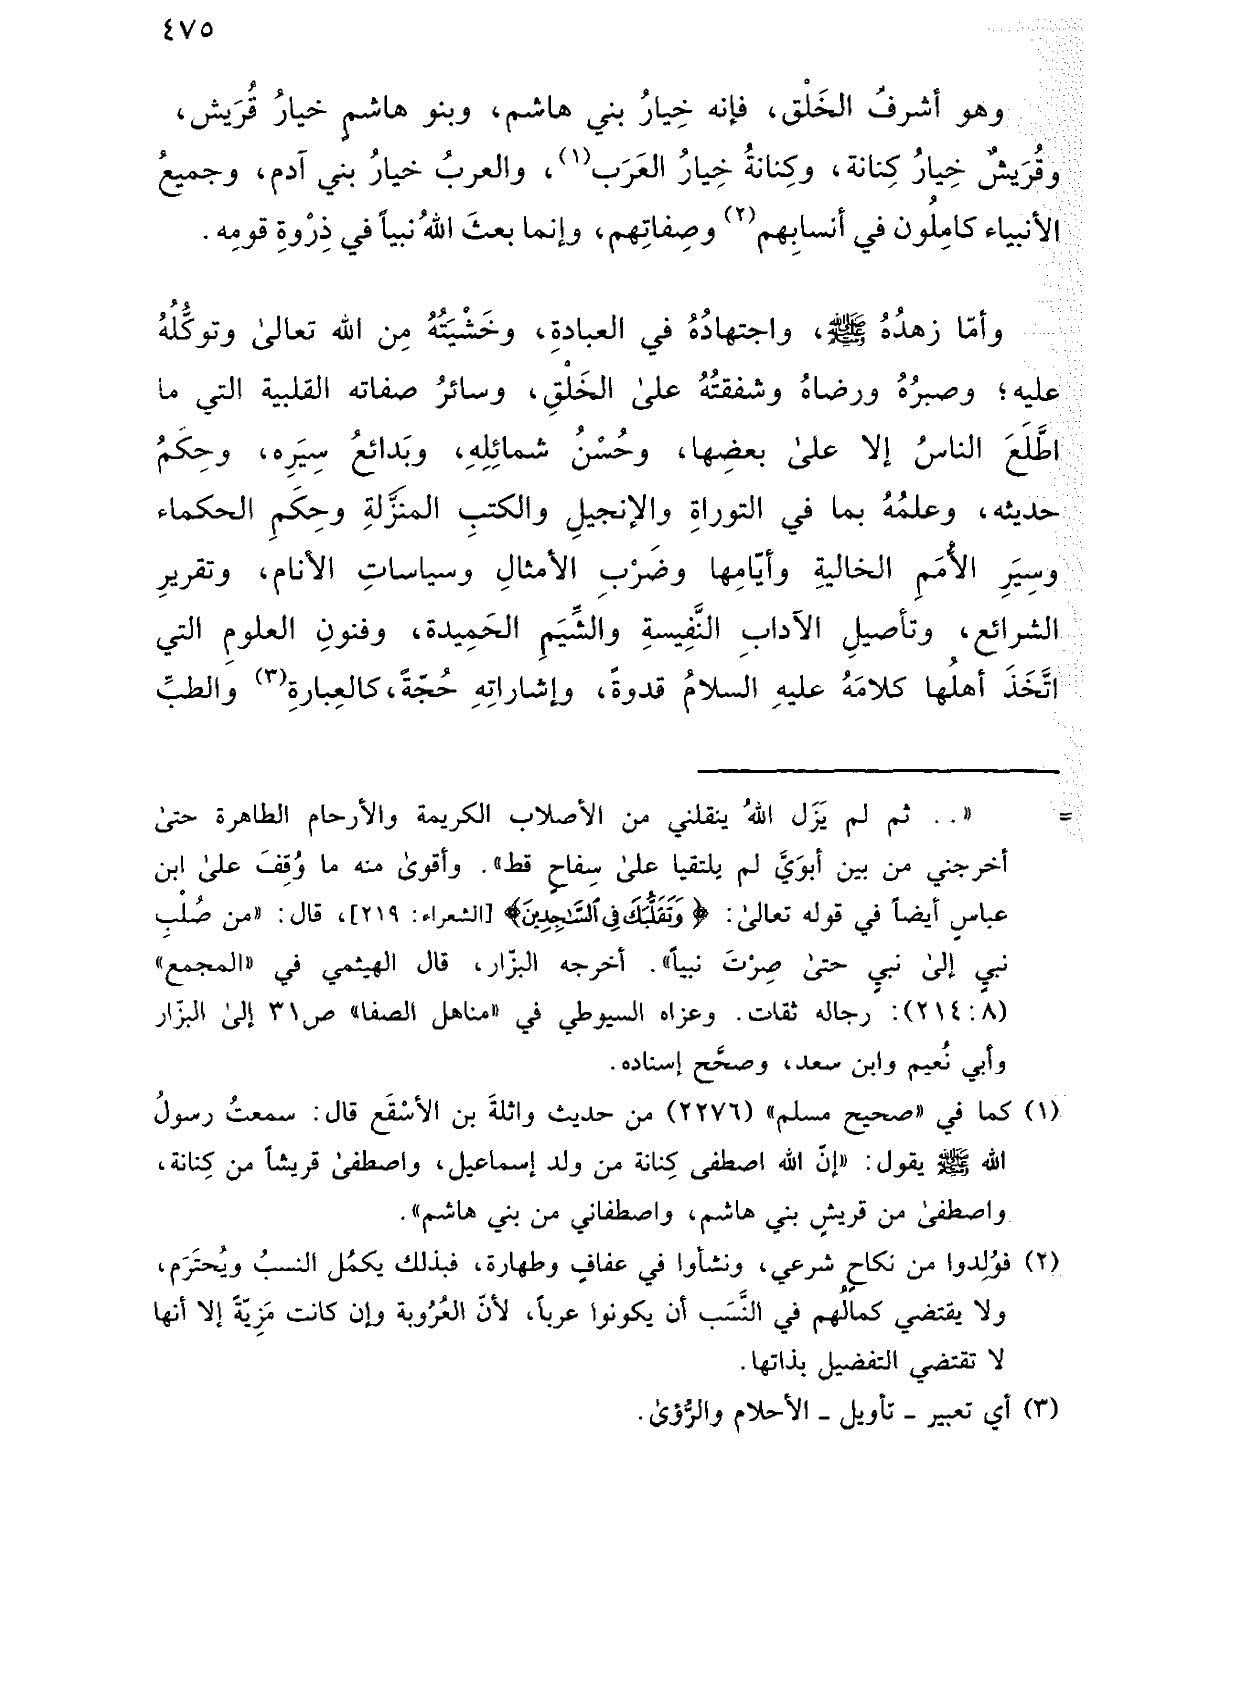 ٤٧٥
وهو أشرفُ الخَلْق، فإنه خِيارُ بني هاشم، وبنو هاشمٍ خيارُ قُرَيش،
وقُرَيشٌ خِيارُ كِنانة، وكِنانةُ خِيارُ العَرَب(١)، والعربُ خيارُ بني آدم، وجميعُ
الأنبياء كامِلُون في أنسابِهم(٢) وصِفاتِهم، وإنما بعثَ اللهُ نبياً في ذِرْوةِ قومِه.
وأمّا زهدُهُ ﷺ، واجتهادُهُ في العبادةِ، وخَشْيَتُهُ مِن الله تعالىٰ وتوكُّلُهُ
عليه؛ وصبرُهُ ورضاهُ وشفقتُهُ علىٰ الخَلْقِ، وسائرُ صفاته القلبية التي ما
اطَّلَعَ الناسُ إلا علىٰ بعضِها، وحُسْنُ شمائلِهِ، وبَدائعُ سِيَرِه، وحِكَمُ
حديثه، وعلمُهُ بما في التوراةِ والإنجيلِ والكتبِ المنَزَّلةِ وحِكَمِ الحكماء
وسِيَرِ الأُمَمِ الخاليةِ وأيّامِها وضَرْبِ الأمثالِ وسياساتِ الأنام، وتقريرِ
الشرائع، وتأصيلِ الآدابِ النَّفِيسةِ والشِّيَمِ الحَمِيدة، وفنونِ العلومِ التي
اتَّخَذَ أهلُها كلامَهُ عليهِ السلامُ قدوةً، وإشاراتِهِ حُجّةً، كالعِبارةِ(٣) والطبِّ
= «.. ثم لم يَزَل اللهُ ينقلني من الأصلاب الكريمة والأرحام الطاهرة حتىٰ
أخرجني من بين أبوَيَّ لم يلتقيا علىٰ سِفاحٍ قط». وأقوىٰ منه ما وُقِفَ علىٰ ابن
عباسٍ أيضاً في قوله تعالىٰ: ﴿وَتَقَلُّبَكَ فِي ٱلسَّٰجِدِينَ﴾ [الشعراء: ٢١٩]، قال: «من صُلْبِ
نبي إلىٰ نبيٍ حتىٰ صِرْتَ نبياً». أخرجه البزّار، قال الهيثمي في «المجمع»
(٨: ٢١٤): رجاله ثقات. وعزاه السيوطي في «مناهل الصفا» ص٣١ إلىٰ البزّار
وأبي نُعيم وابن سعد، وصحَّح إسناده.
(١) كما في «صحيح مسلم» (٢٢٧٦) من حديث واثلةَ بن الأسْقَع قال: سمعتُ رسولُ
الله ﷺ يقول: «إنّ الله اصطفى كِنانة من ولد إسماعيل، واصطفىٰ قريشاً من كِنانة،
واصطفىٰ من قريشٍ بني هاشم، واصطفاني من بني هاشم».
(٢) فوُلِدوا من نكاحٍ شرعي، ونشأوا في عفافٍ وطهارة، فبذلك يكمُل النسبُ ويُحتَرَم،
ولا يقتضي كمالُهم في النَّسَب أن يكونوا عرباً، لأنّ العُرُوبة وإن كانت مَزِيّةً إلا أنها
لا تقتضي التفضيل بذاتها.
(٣) أي تعبير ـ تأويل ـ الأحلام والرُّؤىٰ.